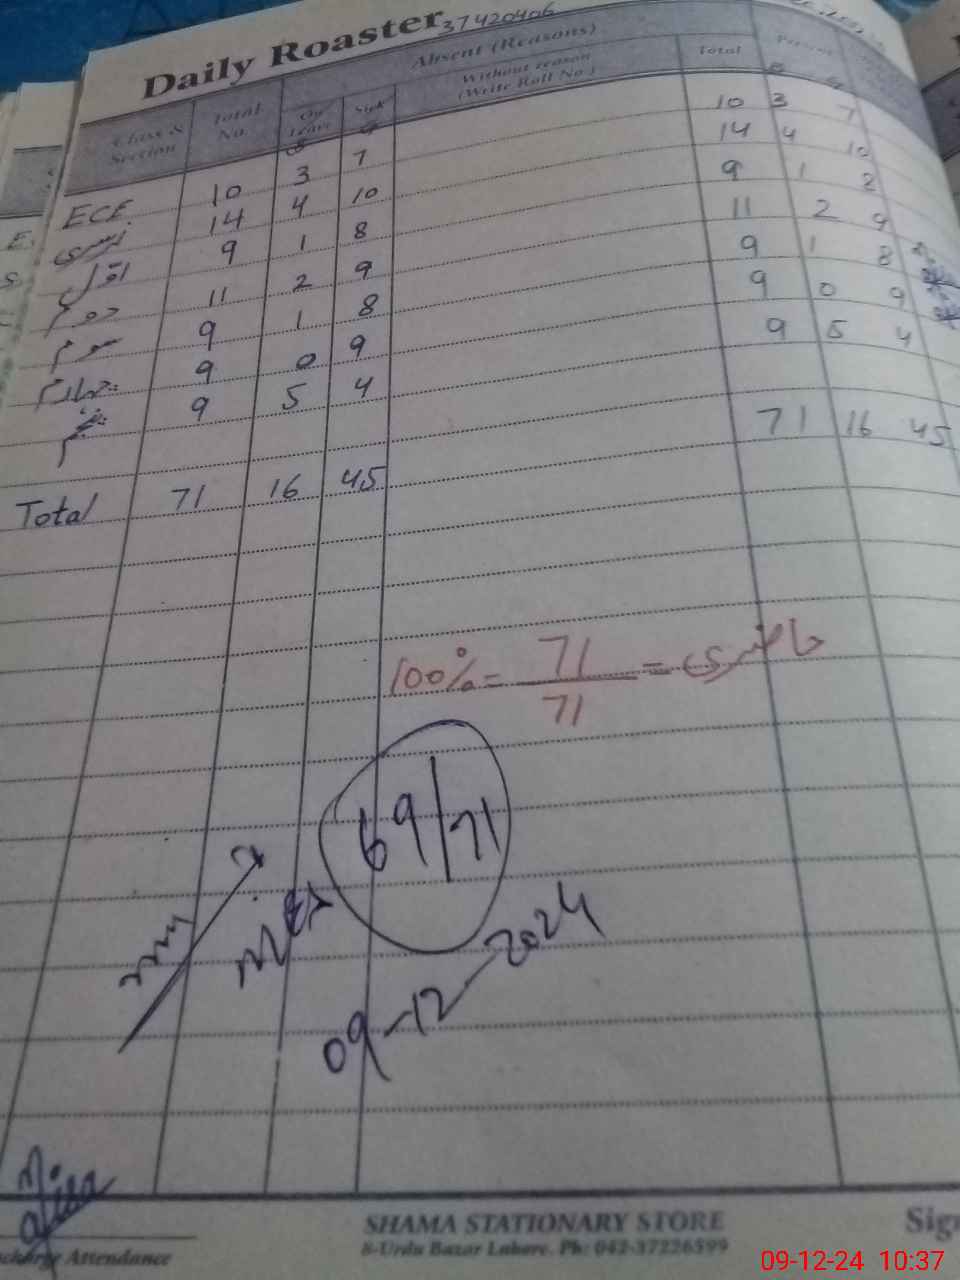 Daily Roaster 37420406
Absent (Reasons)
Class & Section Total No. On Leave Sick Without reason (Write Roll No.) Total Present
ECE 10 3 7 10 3 7
نرسری 14 4 10 14 4 10
اول 9 1 8 9 1 8
دوم 11 2 9 11 2 9
سوم 9 1 8 9 1 8
چہارم 9 0 9 9 0 9
پنجم 9 5 4 9 5 4
Total 71 16 45 71 16 45
100% = 71/71 = حاضری
69/71
09-12-2024
Attendance
SHAMA STATIONARY STORE
8-Urdu Bazar Lahore. Ph: 042-37226599
Sig
09-12-24 10:37